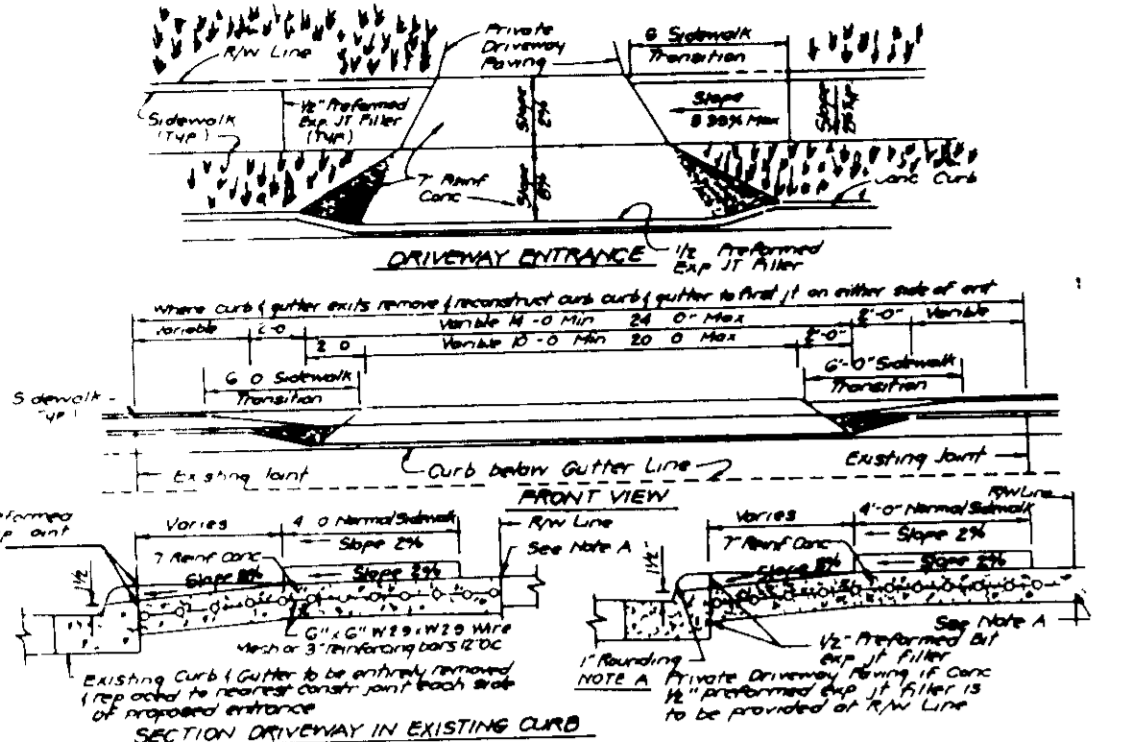 Private
Driveway
Paving
6 Sidewalk
Transition
R/W Line
Sidewalk
(Typ)
1/2" Preformed
Exp. JT Filler
(Typ)
Slope
2%
Slope
8 33% Max
Slope
2% Typ
7" Reinf
Conc
Slope
8%
Conc Curb
DRIVEWAY ENTRANCE
1/2 Preformed
Exp JT Filler
Where curb & gutter exits remove & reconstruct curb curb & gutter to first jt on either side of ent
Variable
2-0
Variable 14-0 Min 24 0" Max
2'-0"
Variable
2 0
Variable 10-0 Min 20 0 Max
2'-0"
6 0 Sidewalk
Transition
6'-0" Sidewalk
Transition
S dewalk
Typ)
Existing Joint
Curb below Gutter Line
Existing Joint
FRONT VIEW
Varies
4 0 Normal Sidewalk
R/W Line
Slope 2%
See Note A
7 Reinf Conc
Slope 8%
Slope 2%
1 1/2
6" x 6" W2 9 x W2 9 Wire
Mesh or 3" reinforcing bars 12" OC
Existing Curb & Gutter to be entirely removed
& replaced to nearest constr joint each side
of proposed entrance
SECTION DRIVEWAY IN EXISTING CURB
Varies
4'-0" Normal Sidewalk
R/W Line
Slope 2%
7" Reinf Conc
Slope 8%
Slope 2%
1 1/2"
See Note A
1/2" Preformed Bit
exp jt filler
1" Rounding
NOTE A Private Driveway Paving if Conc
1/2" preformed exp jt filler is
to be provided at R/W Line